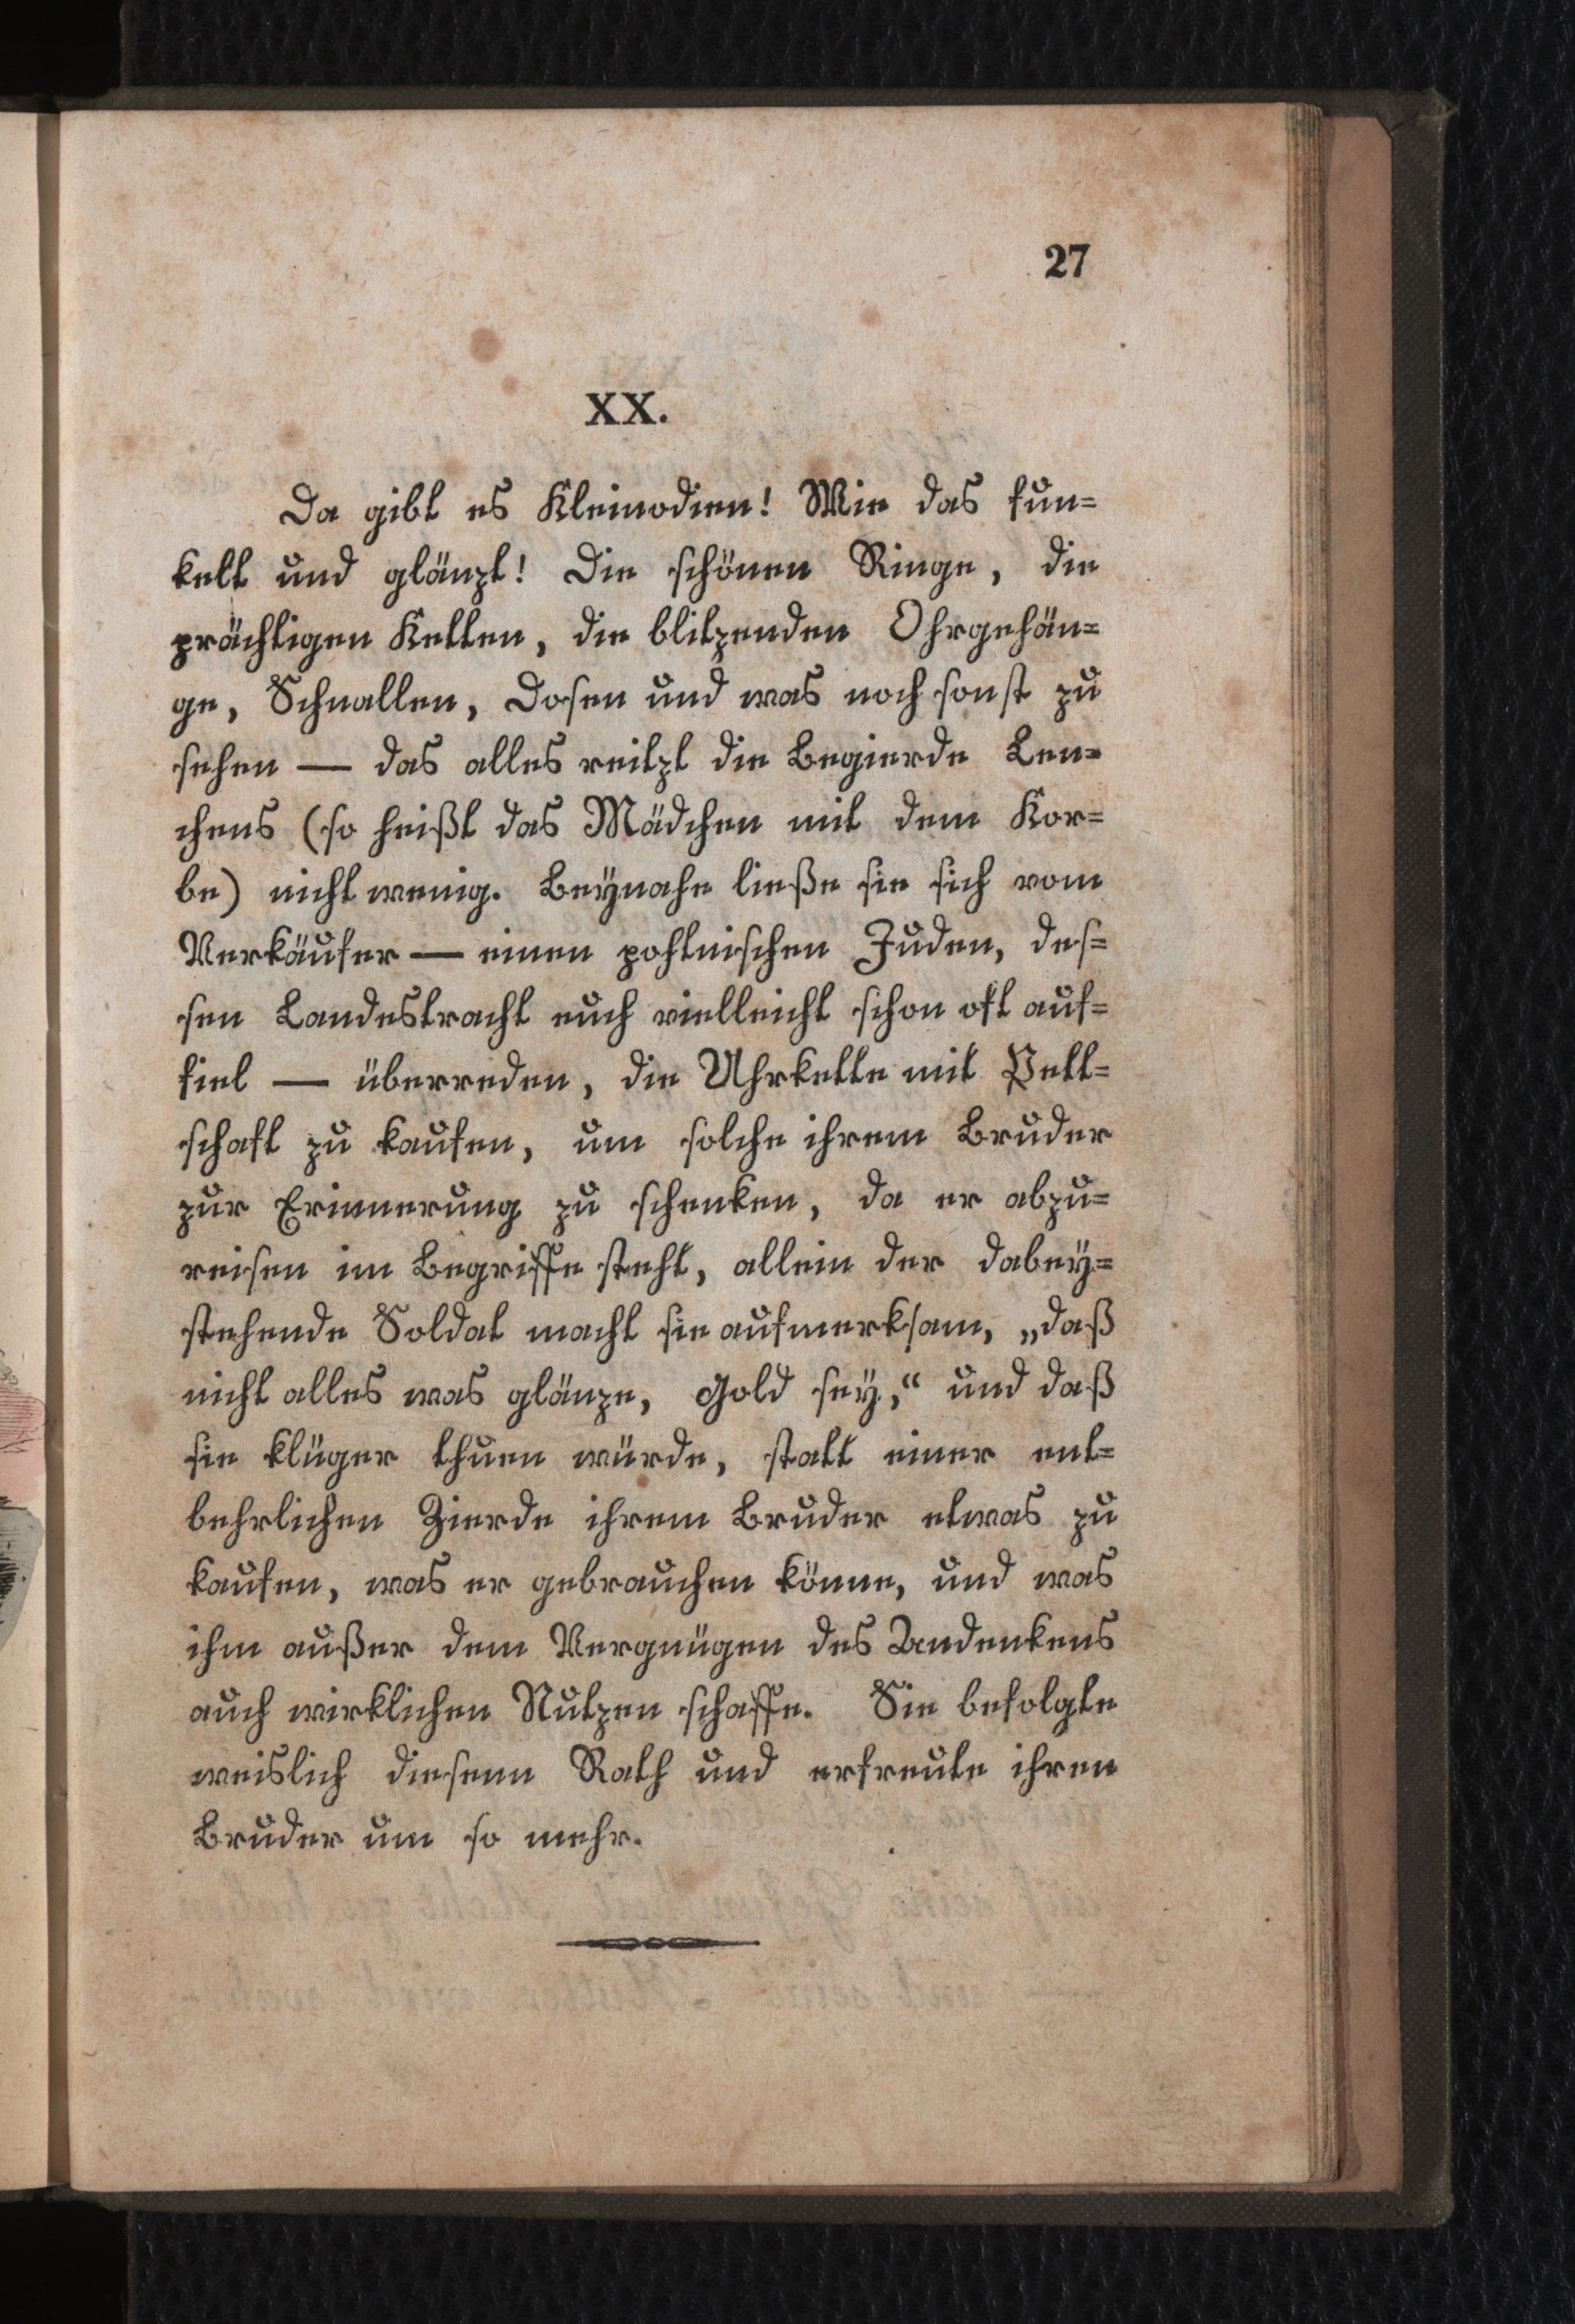 27
XX.
Da gibt es Kleinodien! Wie das fun=
kelt und glänzt! Die schönen Ringe, die
prächtigen Ketten, die blitzenden Ohrgehän=
ge, Schnallen, Dosen und was noch sonst zu
sehen — das alles reitzt die Begierde Len=
chens (so heißt das Mädchen mit dem Kor=
be) nicht wenig. Beynahe ließe sie sich vom
Verkäufer — einen pohlnischen Juden, des=
sen Landestracht euch vielleicht schon oft auf=
fiel — überreden, die Uhrkette mit Pett=
schaft zu kaufen, um solche ihrem Bruder
zur Erinnerung zu schenken, da er abzu=
reisen im Begriffe steht, allein der dabey=
stehende Soldat macht sie aufmerksam, „daß
nicht alles was glänze, Gold sey,“ und daß
sie klüger thuen würde, statt einer ent=
behrlichen Zierde ihrem Bruder etwas zu
kaufen, was er gebrauchen könne, und was
ihm außer dem Vergnügen des Andenkens
auch wirklichen Nutzen schaffe. Sie befolgte
weislich diesenn Rath und erfreute ihren
Bruder um so mehr.